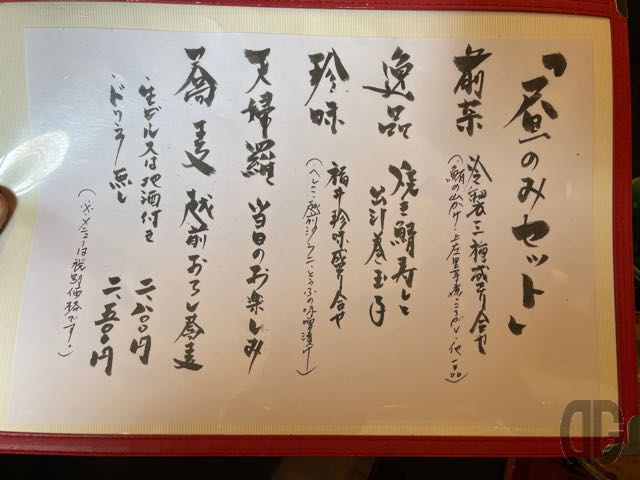 「昼のみセット」
前菜 冷製三種盛り合せ
(鯖の山かけ・上庄里芋煮ころがし・他一品)
逸品 焼き鯖寿しと
出汁巻玉子
珍味 福井珍味盛り合せ
(へしこ・越前カニ・とうふの味噌漬け)
天婦羅 当日のお楽しみ
蕎麦 越前おろし蕎麦
・生ビール又は地酒付き 二、八〇〇円
・ドリンク無し 二、五〇〇円
(※メニューは税別価格です。)
DG